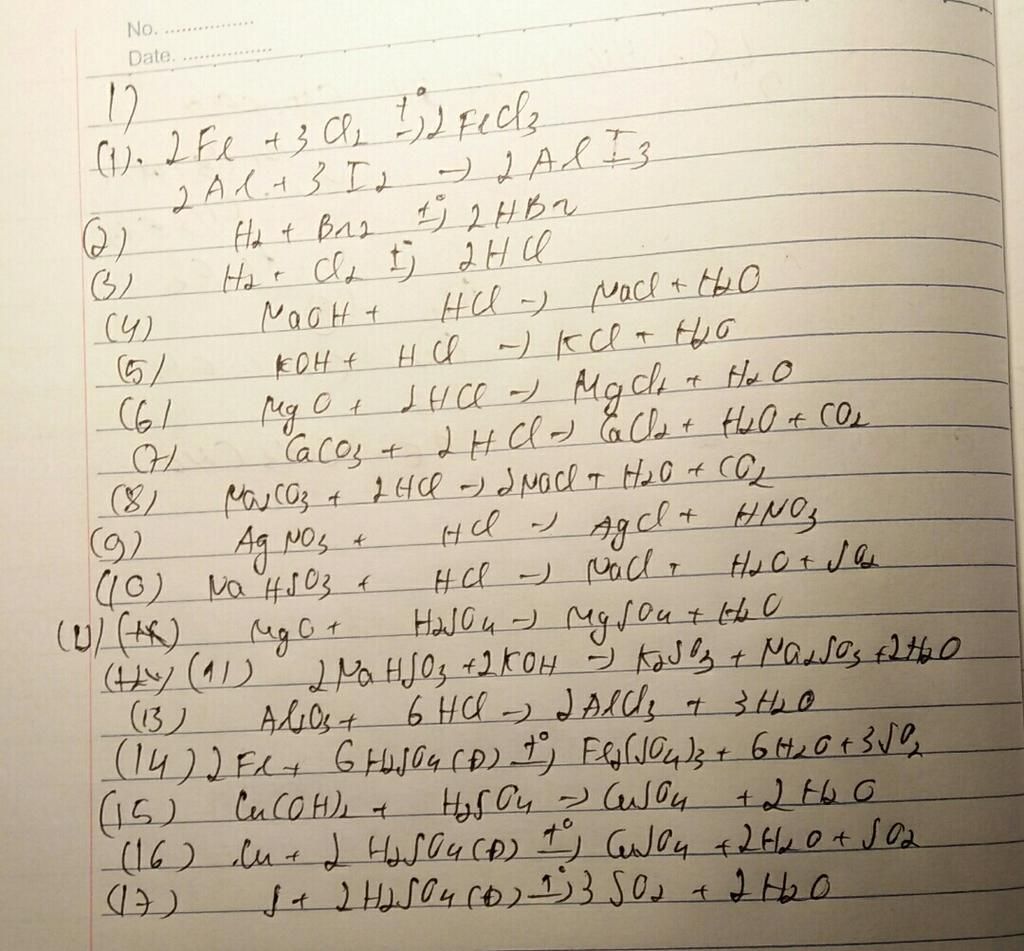 No. ................
Date. ................
1)
(1). 2Fe + 3Cl₂ t°→ 2FeCl₃
2Al + 3I₂ → 2AlI₃
(2) H₂ + Br₂ t°→ 2HBr
(3) H₂ + Cl₂ t°→ 2HCl
(4) NaOH + HCl → NaCl + H₂O
(5) KOH + HCl → KCl + H₂O
(6) MgO + 2HCl → MgCl₂ + H₂O
(7) CaCO₃ + 2HCl → CaCl₂ + H₂O + CO₂
(8) Na₂CO₃ + 2HCl → 2NaCl + H₂O + CO₂
(9) AgNO₃ + HCl → AgCl + HNO₃
(10) NaHSO₃ + HCl → NaCl + H₂O + SO₂
MgO + H₂SO₄ → MgSO₄ + H₂O
(11) 2NaHSO₃ + 2KOH → K₂SO₃ + Na₂SO₃ + 2H₂O
(13) Al₂O₃ + 6HCl → 2AlCl₃ + 3H₂O
(14) 2Fe + 6H₂SO₄(Đ) t°→ Fe₂(SO₄)₃ + 6H₂O + 3SO₂
(15) Cu(OH)₂ + H₂SO₄ → CuSO₄ + 2H₂O
(16) Cu + 2H₂SO₄(Đ) t°→ CuSO₄ + 2H₂O + SO₂
(17) S + 2H₂SO₄(Đ) t°→ 3SO₂ + 2H₂O